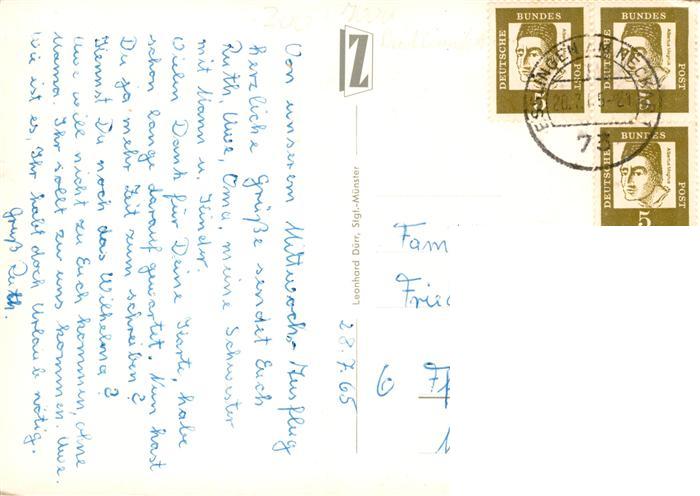 Von unserem Mittwoch-Ausflug
herzliche Grüße sendet Euch
Ruth, Uwe, Oma, meine Schwester
mit Mann u. Kinder.
Vielen Dank für Deine Karte, habe
schon lange darauf gewartet. Nun hast
Du ja mehr Zeit zum schreiben?
Kennst Du noch das Wilhelma?
Uwe will nicht zu Euch kommen, ohne
Mama. Ihr sollt zu uns kommen. Uwe.
Wie ist es, Ihr habt doch Urlaub nötig.
Gruß Ruth.
28.7.65
Leonhard Dürr, Stgt.-Münster
Z
DEUTSCHE BUNDES POST
5
DEUTSCHE BUNDES POST
Albertus Magnus
5
DEUTSCHE BUNDES POST
Albertus Magnus
5
ESSLINGEN AM NECKAR
73
Fam
Fried
6